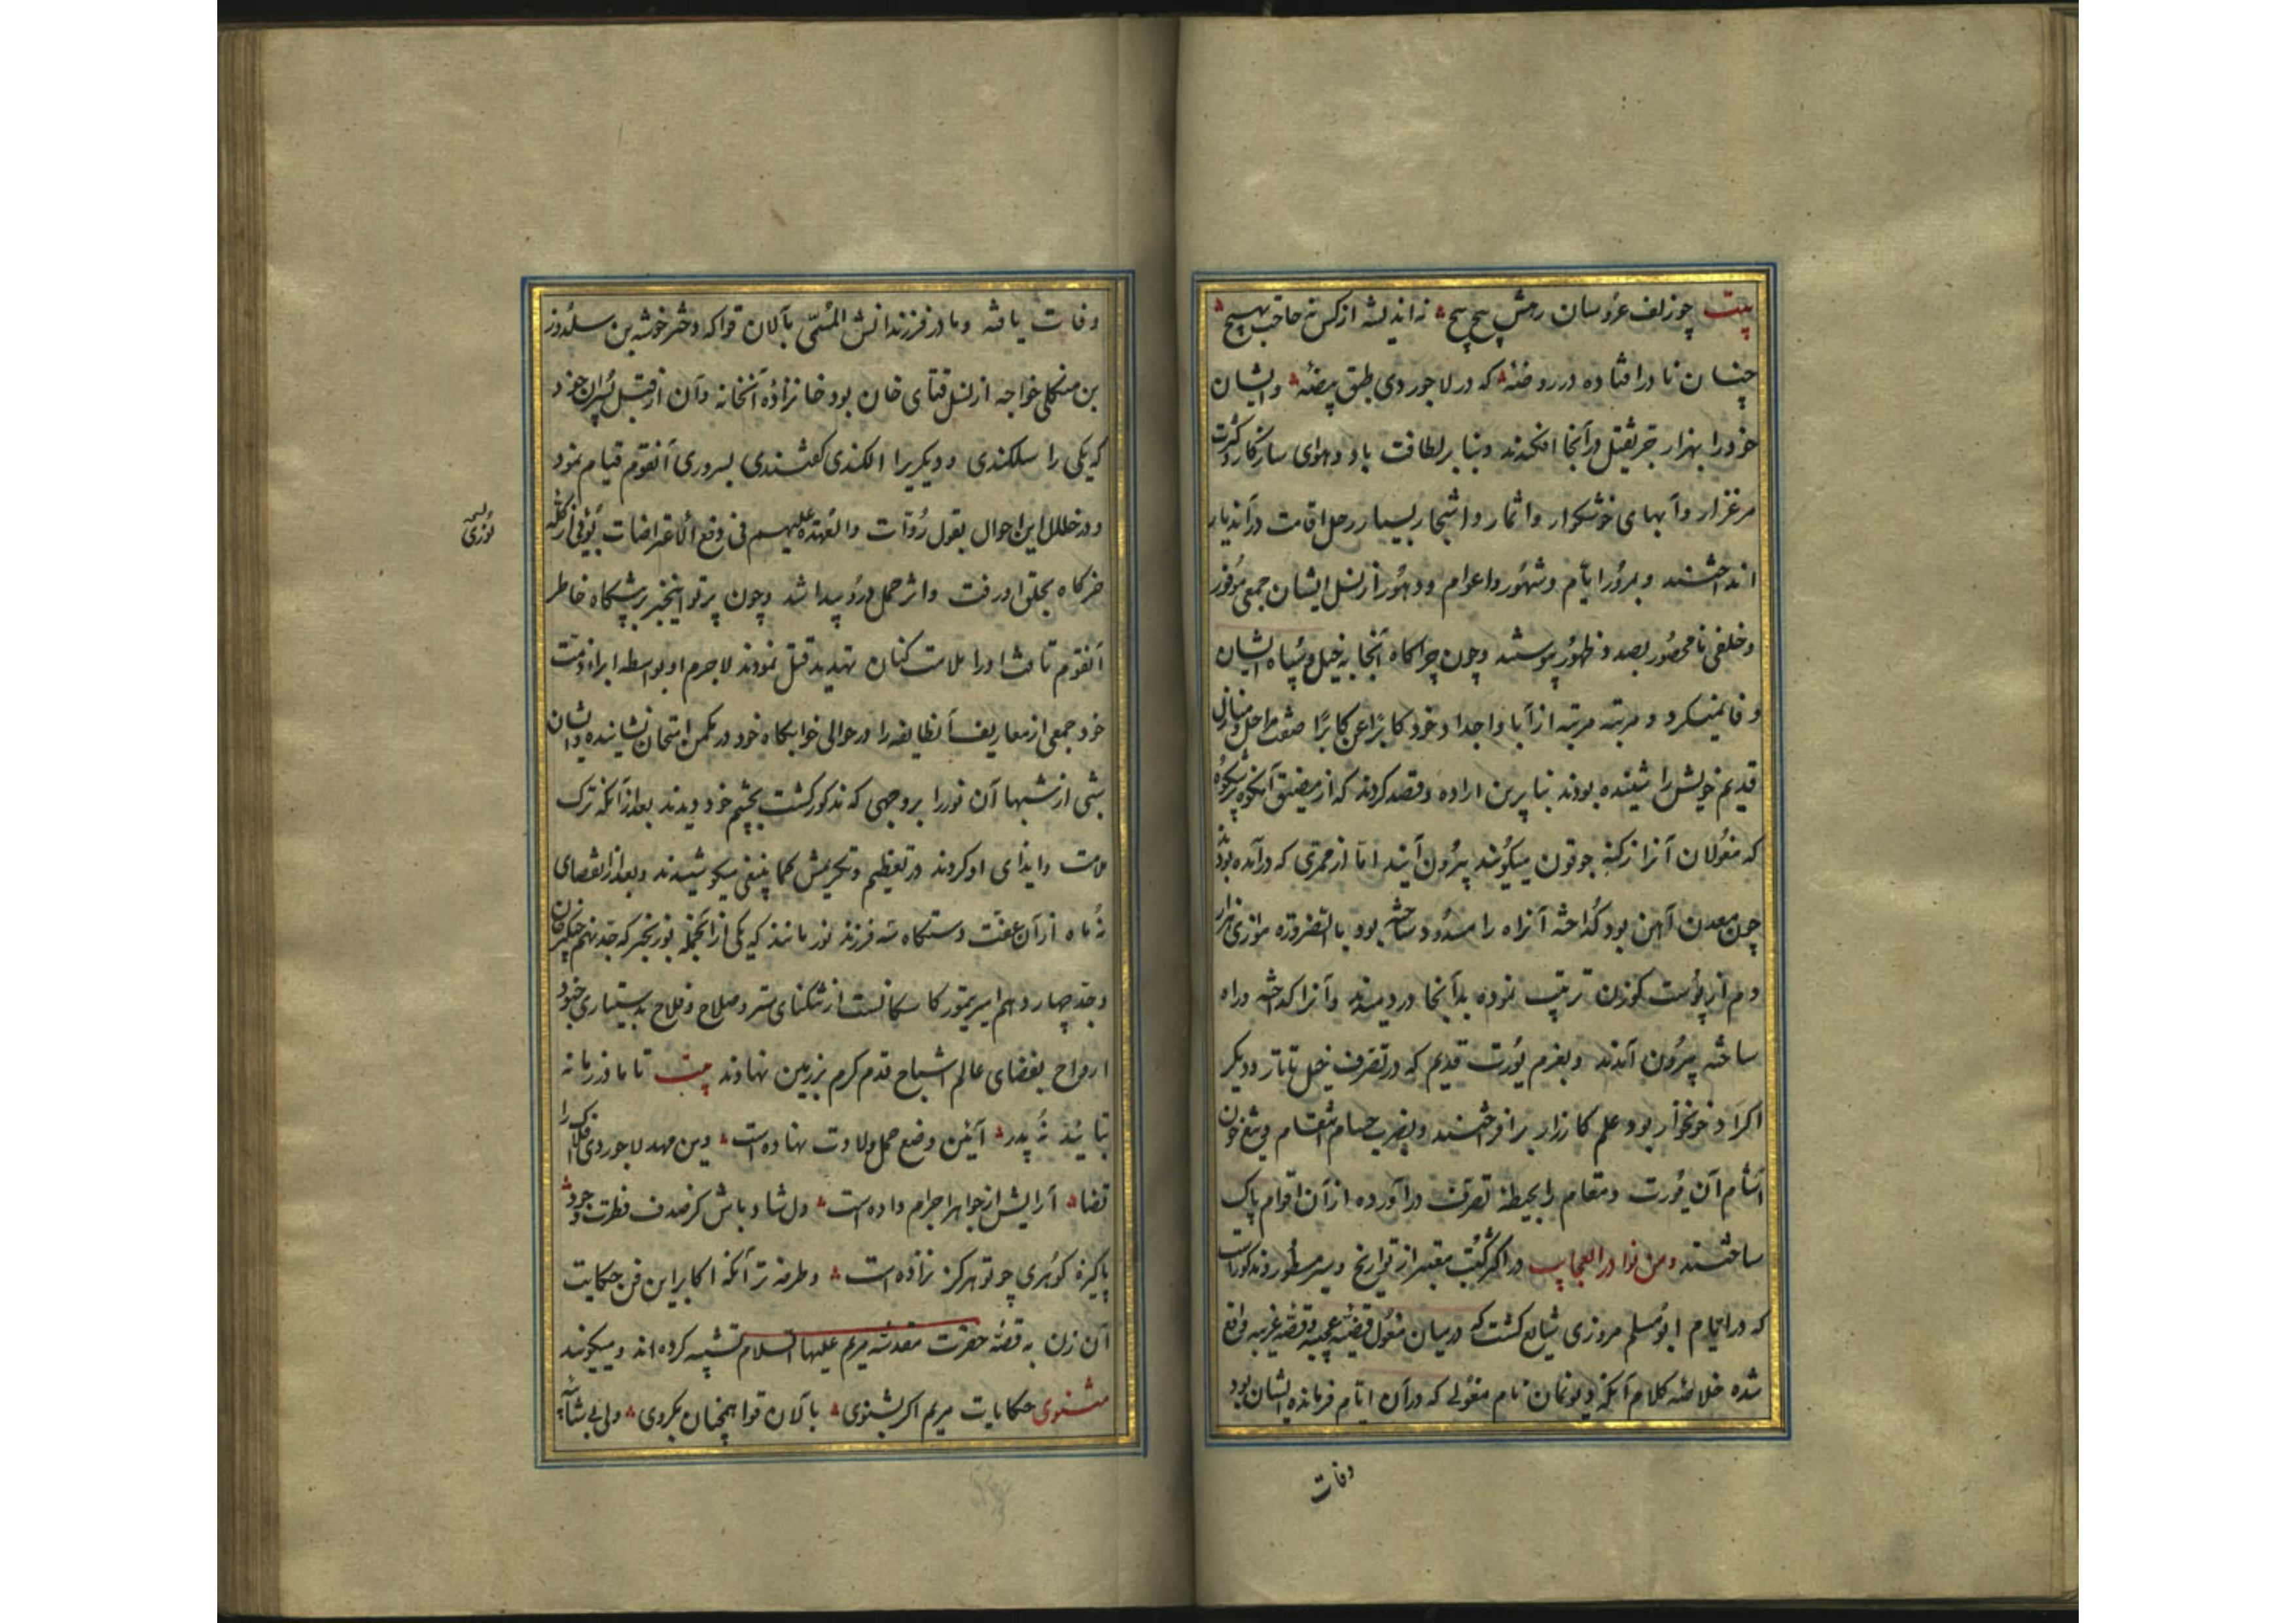 بیت چو زلف عروسان رهش پیچ پیچ نه اندیشه از کس نه حاجب بهیچ
چنان نادر افتاده در روضهٔ که در لاجوردی طبق بیضهٔ وایشان
خودرا بهزار جر ثقیل درآنجا افکندند وبنا بر لطافت باد وهوای سازکار وکثرت
مرغزار وآبهای خوشکوار واثمار واشجار بسیار رحل اقامت درآندیار
انداختند وبمرور ایام وشهور واعوام ودهور از نسل ایشان جمعی موفور
وخلقی نامحصور بصدد ظهور پیوستند وچون چراکاه آنجا به خیل وسپاه ایشان
وفا نمیکرد ومرتبه مرتبه از آبا واجداد خود کابرًا عن کابرًا صفت مراحل ومنازل
قدیم خویش را شنیده بودند بنا برین اراده وقصد کردند که از مضیق آنکوه پرشکوه
که مغولان آنرا ارکنه قوتون میکویند بیرون آیند اما از ممری که درآمده بودند
چون معدن آهن بود کداخته آنراه را مسدود ساخته بود بالضروره موازی هزار
دم از پوست کوزن ترتیب نموده بدآنجا دردمیدند وآنرا کداخته وراه
ساخته بیرون آمدند وبعزم یورت قدیم که در تصرف خیل تاتار ودیکر
اکراد خونخوار بود علم کارزار برافراختند وبضرب حسام انتقام وتیغ خون
آشام آن یورت ومقام را بحیطهٔ تصرف درآورده از آن اقوام پاک
ساختند ومن نوادر العجایب در اکثر کتب معتبر از تواریخ وسیر مسطور ومذکورست
که در ایام ابومسلم مروزی شایع کشت که درمیان مغول قضیهٔ عجیبه وقصهٔ غریبه واقع
شده خلاصهٔ کلام آنکه دیونمان نام مغولی که درآن ایام فرمانده ایشان بود
وفات
وفات یافته ومادر فرزندانش المسمی بآلان قوا که دختر خوشه بن سلدوز
بن منکلی خواجه از نسل قتای خان بود خانزادهٔ آنخانه وآن از قبل پسران خود
که یکی را سلکندی ودیکریرا الکندی کفتندی بسروری آنقوم قیام نمود
ودرخلال این احوال بقول روات والعهدة علیهم فی دفع الاعتراضات نوری از کله
خرکاه بحلق او رفت واثر حمل درو پیدا شد وچون پرتو اینخبر برپیشکاه خاطر
آنقوم تافت اورا ملامت کنان تهدید قتل نمودند لاجرم او بواسطه ابراء ذمت
خود جمعی از معاریف آنطایفه را در حوالی خوابکاه خود در مکمن امتحان نشانیده وایشان
شبی از شبها آن نوررا بروجهی که مذکور کشت بچشم خود دیدند بعد از آنکه ترک
ملامت وایذای او کردند در تعظیم وتکریمش کما ینبغی میکوشیدند وبعد از انقضای
نه ماه از آن عفت دستکاه سه فرزند نور مانند که یکی از آنجمله بوزنجر که جد نهم چنکیز خان
وجد چهاردهم امیر تیمور کورکانست از تنکنای ستر وصلاح وفلاح بدستیاری جنود
ارواح بفضای عالم اشباح قدم کرم برزمین نهادند بیت تا مادر زمانه
بتایید نه پدر آیین وضع حمل ولادت نهاده است وین مهد لاجوردی افلاک را
قضا آرایش از جواهر اجرام داده است دل شاد باش کز صدف فطرت وجود
پاکیزه کوهری چو تو هرکز نزاده است وطرفه تر آنکه اکابر این فن حکایت
آن زن به قصهٔ حضرت مقدسه مریم علیها السلام تشبیه کرده اند ومیکویند
مثنوی حکایات مریم اکر بشنوی بآلان قوا همچنان بکروی ولی بی شایبه